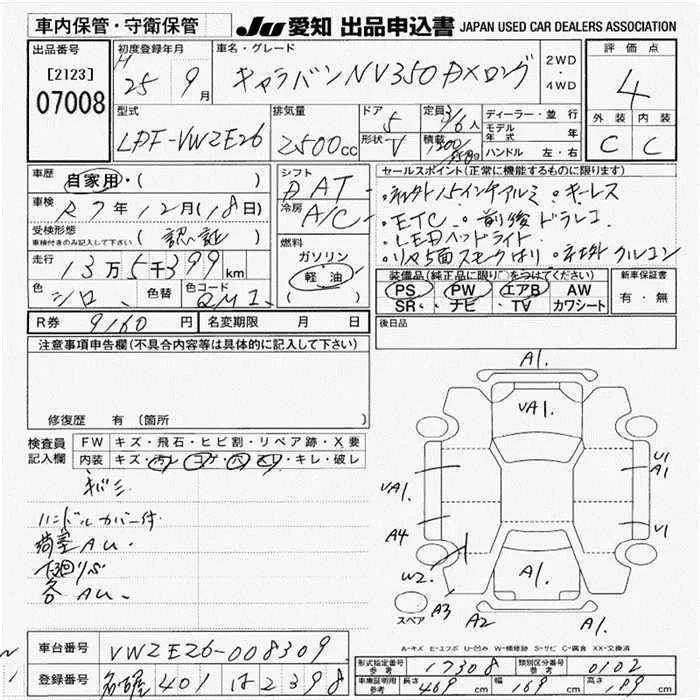 車内保管・守衛保管
JU 愛知 出品申込書 JAPAN USED CAR DEALERS ASSOCIATION
出品番号
[2123]
07008
初度登録年月
H 25 9月
車名・グレード
キャラバンNV350DXロング
2WD
・
4WD
評価点
4
外装 内装
C C
型式
LDF-VW2E26
排気量
2500cc
ドア 5
形状 V
定員 3/6人
積載
ディーラー・並行
モデル年式 年
ハンドル 左・右
車歴 自家用・( )
車検 R7年12月(18日)
受検形態
車検付きのみ記入して下さい (認証)
走行 13万5千399km
色 シロ 色替 色コード QM1
シフト
D AT
冷房 A/C
燃料
ガソリン
軽油
セールスポイント(正常に機能するものに限ります)
・社外15インチアルミ ・キーレス
・ETC ・前後ドラレコ
・LEDヘッドライト
・リヤ5面スモークはり ・社外クルコン
装備品(純正品に限り○をつけてください)
PS PW エアB AW
SR ナビ TV カワシート
新車保証書
有・無
R券 9160円 名変期限 月 日
後日品
注意事項申告欄(不具合内容等は具体的に記入して下さい)
修復歴 有(箇所 )
検査員
記入欄
FW キズ・飛石・ヒビ割・リペア跡・X要
内装 キズ・汚レ・コゲ・穴・スレ・キレ・破レ
キバミ
ハンドルカバー付
荷室AU
下廻りS
各AU
A1.
VA1.
VA1.
A4
W2.
A3
A2
A1.
A1.
U1
A1
U1
スペア
A-キズ E-エクボ U-凹み W-補修跡 S-サビ C-腐食 XX-交換済
車台番号 VW2E26-008309
登録番号 名古屋 401 は 2398
形式指定番号
参考
17308
類別区分番号
参考
0102
車両証明用
参考
長さ 469cm 幅 169cm 高さ 199cm